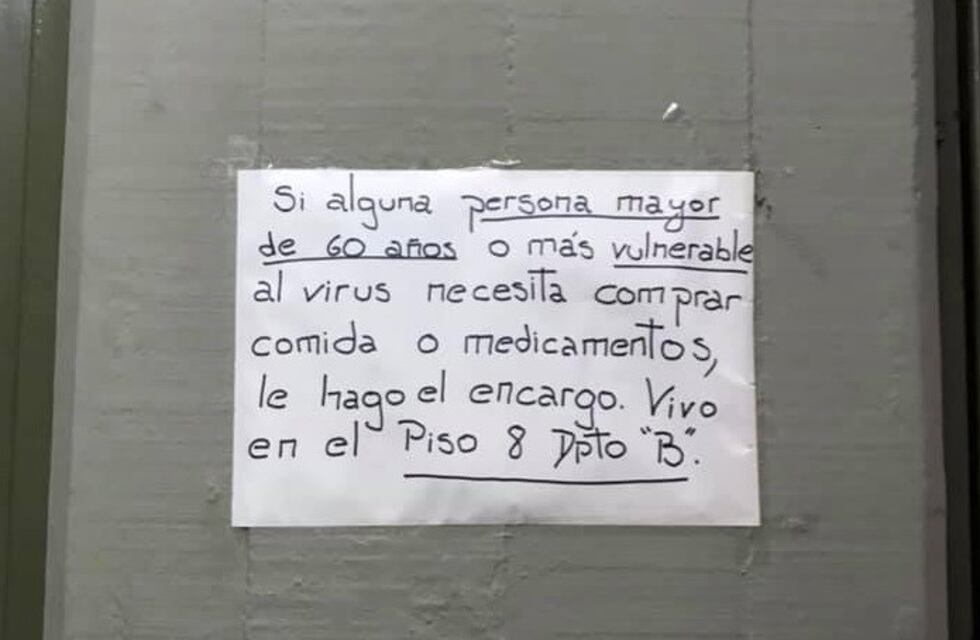 Si alguna persona mayor
de 60 años o más vulnerable
al virus necesita comprar
comida o medicamentos,
le hago el encargo. Vivo
en el Piso 8 Dpto "B".